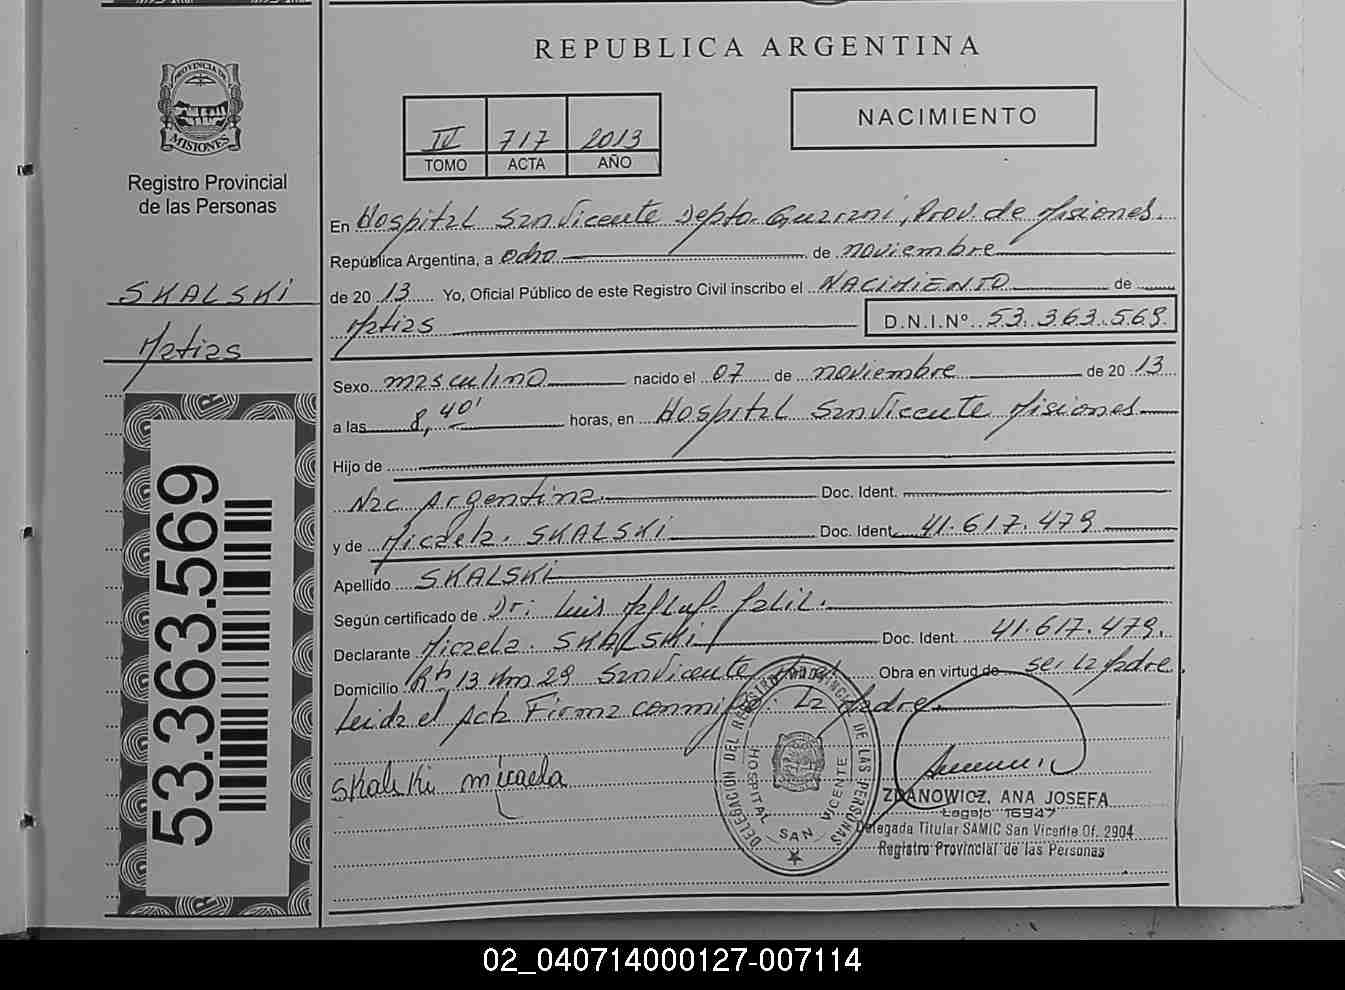 PROVINCIA DE
MISIONES
Registro Provincial
de las Personas
SKALSKI
Matias
53.363.569
REPUBLICA ARGENTINA
IV 717 2013
TOMO ACTA AÑO
NACIMIENTO
En Hospital San Vicente Depto. Guarani, Prov. de Misiones.
República Argentina, a ocho de noviembre
de 2013 Yo, Oficial Público de este Registro Civil inscribo el NACIMIENTO de
Matias D.N.I.Nº 53.363.569
Sexo masculino nacido el 07 de noviembre de 2013
a las 8,40' horas, en Hospital San Vicente Misiones
Hijo de
Nac Argentina Doc. Ident.
y de Micaela. SKALSKI Doc. Ident. 41.617.479
Apellido SKALSKI
Según certificado de Dr: Luis
Declarante Micaela SKALSKI Doc. Ident. 41.617.479.
Domicilio Rta 13 Km 29 San Vicente Obra en virtud de ser la Madre
Leida el Acta Firma conmigo. La Madre
Skalski micaela
DELEGACIÓN DEL REGISTRO PROVINCIAL DE LAS PERSONAS
HOSPITAL SAN VICENTE
ZDANOWICZ, ANA JOSEFA
Legajo 16947
Delegada Titular SAMIC San Vicente Of. 2904
Registro Provincial de las Personas
02_040714000127-007114